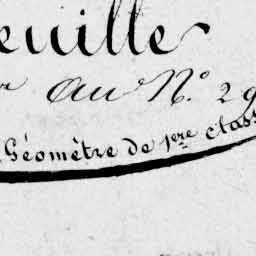 euille
au N.° 29
Géomètre de 1ere class